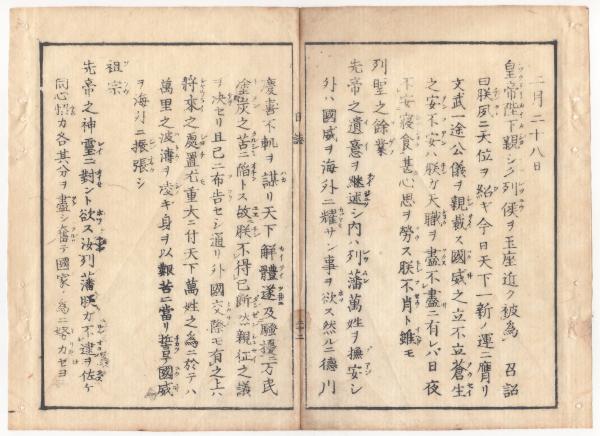 二月二十八日
皇帝陛下親シク列侯ヲ玉座近ク被為 召詔
曰朕夙ニ天位ヲ紹キ今日天下一新ノ運ニ膺リ
文武一途公儀ヲ親裁ス國威之立不立蒼生
之安不安ハ朕ガ天職ヲ盡不盡ニ有レバ日夜
不安寝食甚心思ヲ勞ス朕不肖ト雖モ
列聖之餘業
先帝之遺意ヲ継述シ内ハ列藩萬姓ヲ撫安シ
外ハ國威ヲ海外ニ耀サン事ヲ欲ス然ルニ德川
日誌
慶喜不軌ヲ謀リ天下解體遂及騒擾ニ万民
塗炭之苦ニ陥トス故朕不得已断然親征之議
ヲ决セリ且已ニ布告セシ通リ外國交際モ有之上ハ
将來之處置尤重大ニ付天下萬姓之為ニ於テハ
萬里之波濤ヲ凌ギ身ヲ以艱苦ニ當リ誓テ國威
ヲ海外ニ振張シ
祖宗
先帝之神靈ニ對ント欲ス汝列藩朕ガ不逮ヲ佐ケ
同心恊力各其分ヲ盡シ奮テ國家ノ為ニ努力セヨ